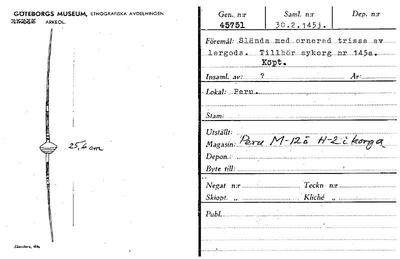 GÖTEBORGS MUSEUM, ETNOGRAFISKA AVDELNINGEN
ARKEOL.
25,6 cm
Gen. n:r Saml. n:r Dep. n:r
45751 30.2.145j.
Föremål: Slända med ornerad trissa av
lergods. Tillhör sykorg nr 145a.
Köpt.
Insaml. av: ? År:
Lokal: Peru.
Stam:
Utställt:
Magasin: Peru M-12ö H-2 i korga
Depon.:
Byte till:
Negat n:r Teckn n:r
Skiopt. „ Kliché „
Publ.